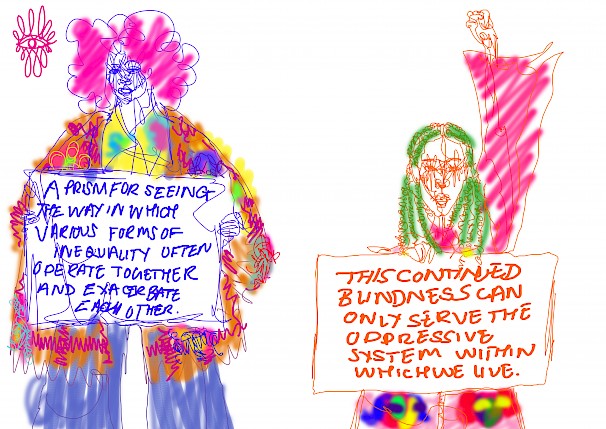 A PRISM FOR SEEING
THE WAY IN WHICH
VARIOUS FORMS OF
INEQUALITY OFTEN
OPERATE TOGETHER
AND EXACERBATE
EACH OTHER.
THIS CONTINUED
BLINDNESS CAN
ONLY SERVE THE
OPPRESSIVE
SYSTEM WITHIN
WHICH WE LIVE.